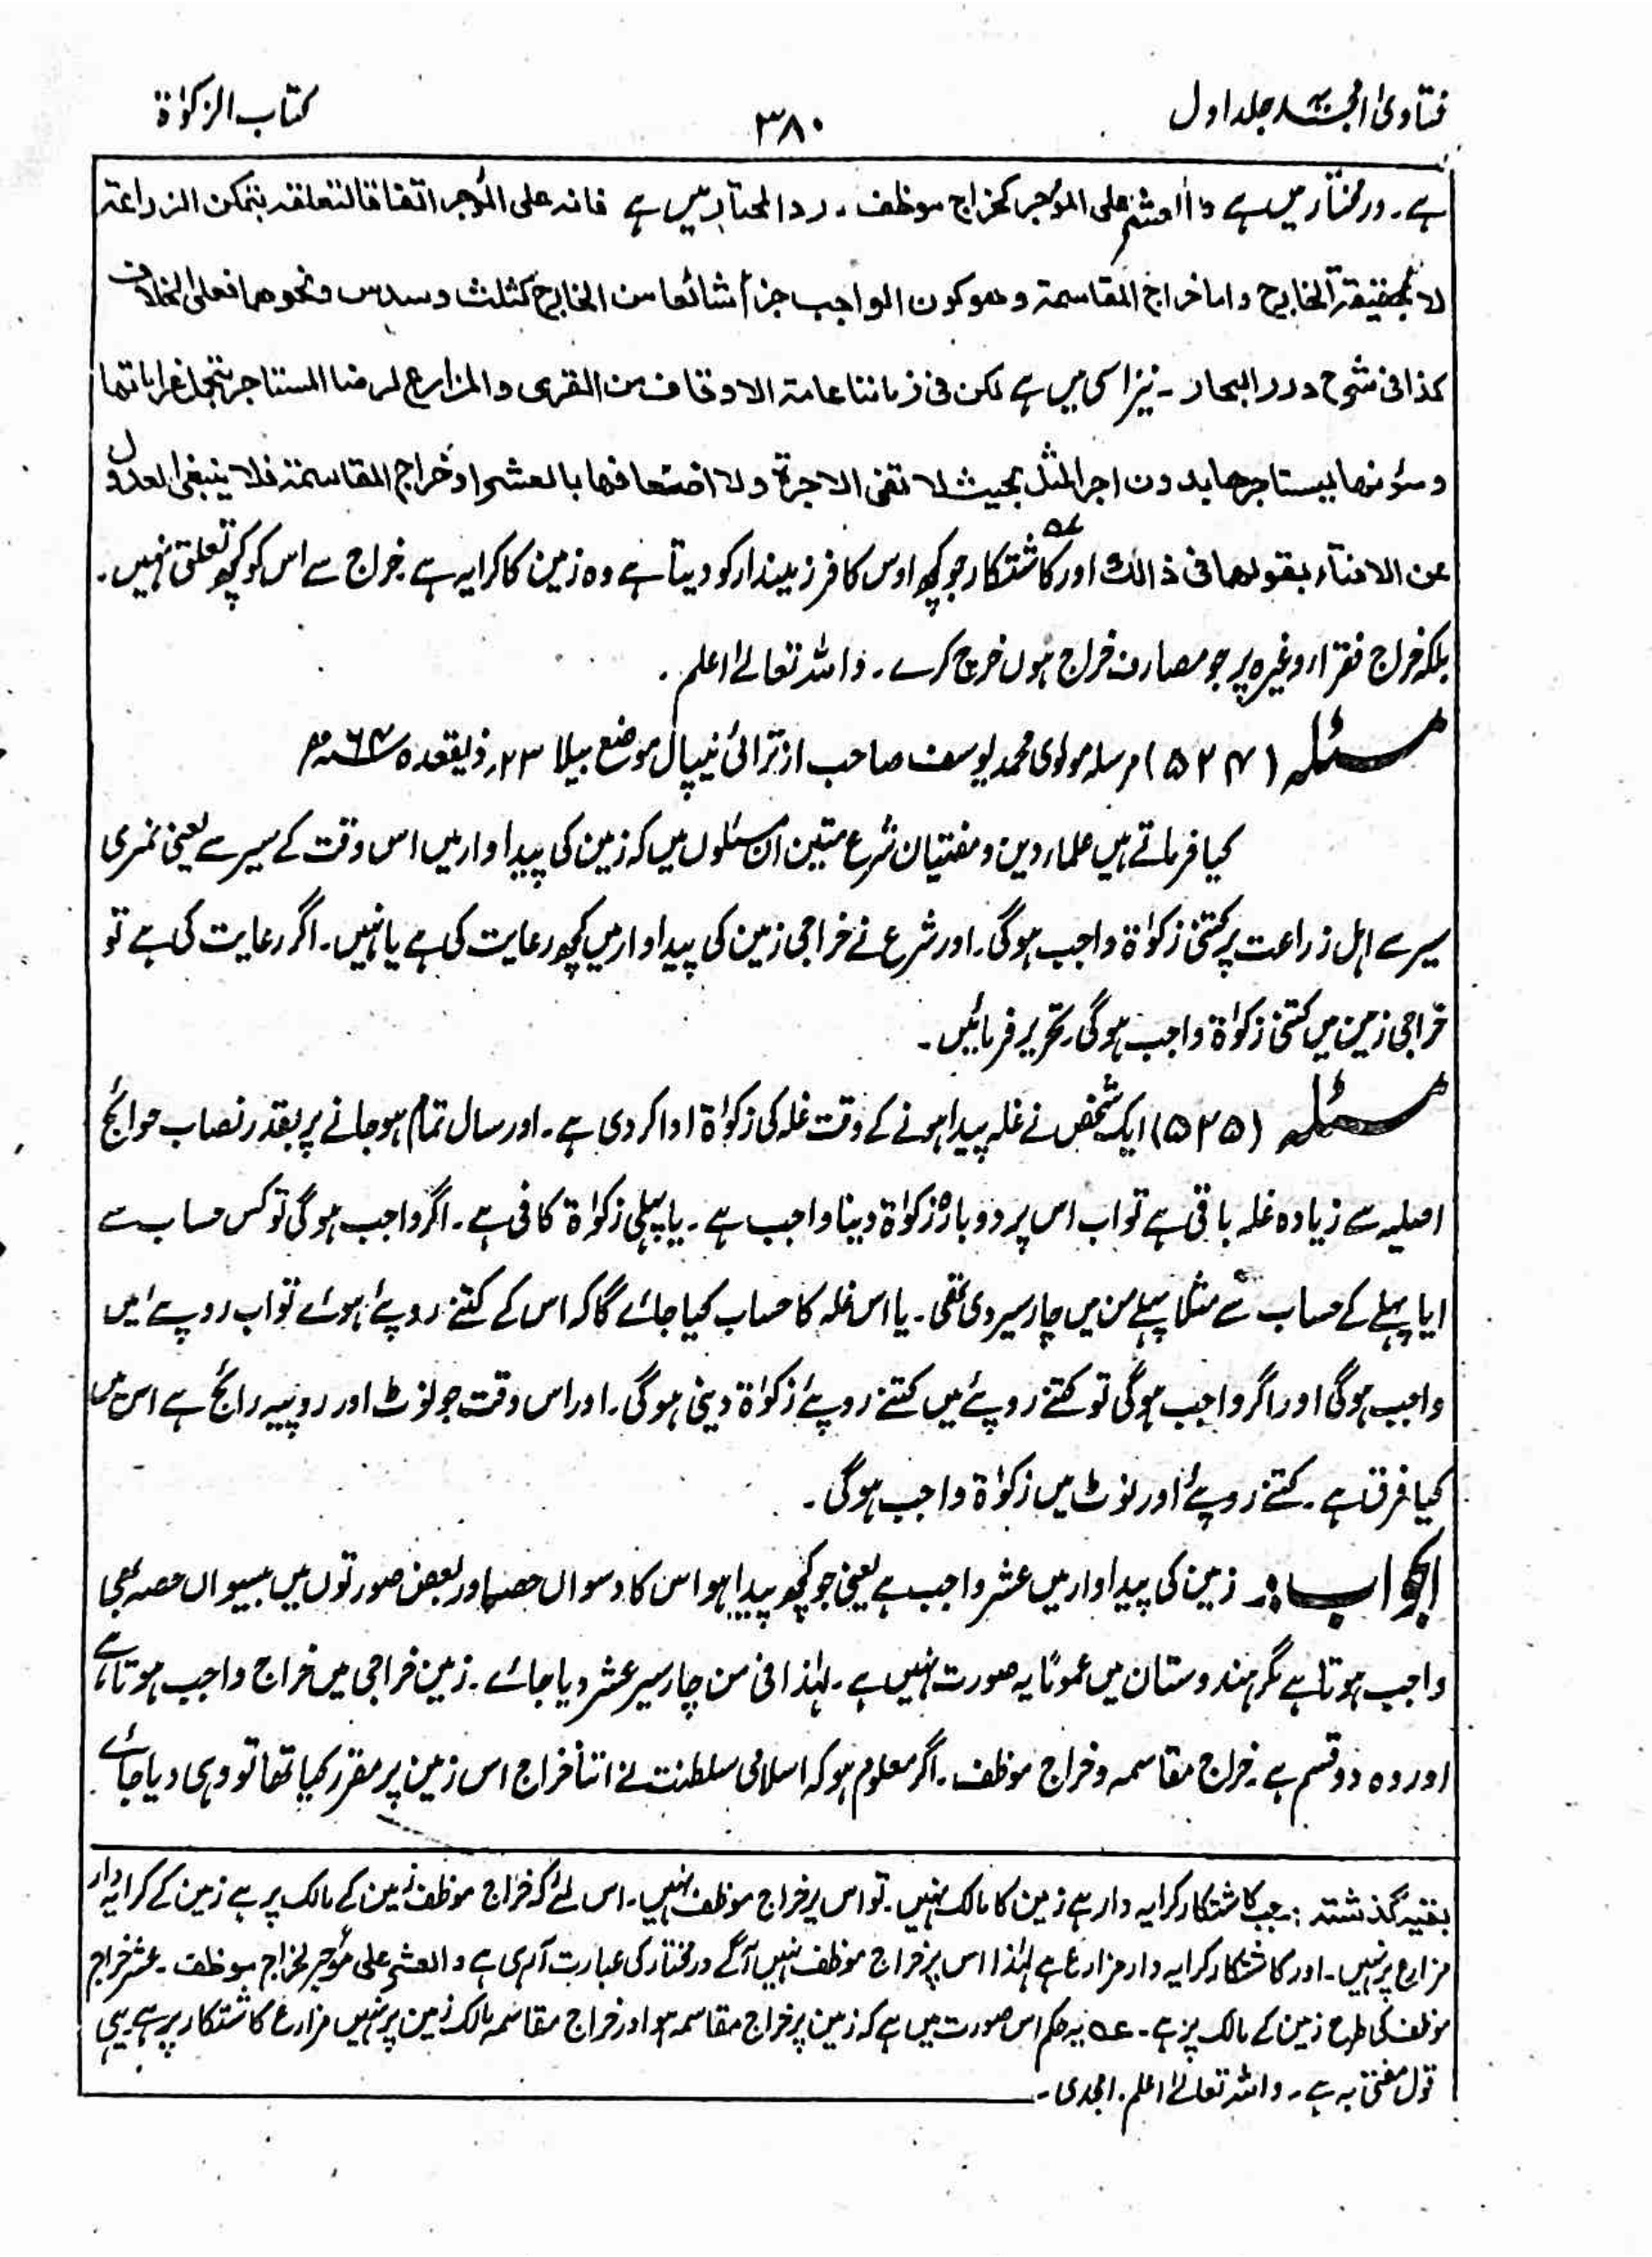 فتاویٰ امجدیہ جلد اول
۳۸۰
کتاب الزکوٰۃ
ہے۔ درمختار میں ہے والعشر علی الموجر کخراج موظف۔ ردالمحتار میں ہے فانہ علی الموجر اتفاقا لتعلقہ بتمکن الزراعۃ
لا بحقیقۃ الخارج واما خراج المقاسمۃ وھو کون الواجب جزأ شائعا من الخارج کثلث وسدس ونحوھما فعلی الخلاف
کذا فی شرح درر البحار۔ نیز اسی میں ہے لکن فی زماننا عامۃ الاوقاف من القری والمزارع لرضا المستاجر بتحمل غراماتھا
ومؤنھا یستاجرھا بدون اجر المثل بحیث لا تفی الاجرۃ ولا اضعافھا بالعشر او خراج المقاسمۃ فلا ینبغی العدول
عن الافتاء بقولھما فی ذالک اور کاشتکار عہ جو کچھ اوس کافر زمیندار کو دیتا ہے وہ زمین کا کرایہ ہے۔ خراج سے اس کو کچھ تعلق نہیں۔
بلکہ خراج فقراء وغیرہ پر جو مصارف خراج ہوں خرچ کرے۔ واللہ تعالےٰ اعلم۔
مسئلہ (۵۲۴) مرسلہ مولوی محمد یوسف صاحب از ترائی نیپال موضع بیلا ۲۳؍ ذیقعدہ ۶۴ھ
کیا فرماتے ہیں علماء دین و مفتیان شرع متین ان مسئلوں میں کہ زمین کی پیداوار میں اس وقت کے سیر سے یعنی نمبری
سیر سے اہل زراعت پر کتنی زکوٰۃ واجب ہوگی۔ اور شرع نے خراجی زمین کی پیداوار میں کچھ رعایت کی ہے یا نہیں۔ اگر رعایت کی ہے تو
خراجی زمین میں کتنی زکوٰۃ واجب ہوگی۔ تحریر فرمائیں۔
مسئلہ (۵۲۵) ایک شخص نے غلہ پیدا ہونے کے وقت غلہ کی زکوٰۃ ادا کردی ہے۔ اور سال تمام ہو جانے پر بقدر نصاب حوائج
اصلیہ سے زیادہ غلہ باقی ہے تو اب اس پر دوبارہ زکوٰۃ دینا واجب ہے۔ یا پہلی زکوٰۃ کافی ہے۔ اگر واجب ہوگی تو کس حساب سے
ایا پہلے کے حساب سے مثلا پہلے من میں چار سیر دی تھی۔ یا اس غلہ کا حساب کیا جائے گا کہ اس کے کتنے روپئے ہوئے تو اب روپے میں
واجب ہوگی اور اگر واجب ہوگی تو کتنے روپئے میں کتنے روپئے زکوٰۃ دینی ہوگی۔ اور اس وقت جو نوٹ اور روپیہ رائج ہے اس میں
کیا فرق ہے۔ کتنے روپئے اور نوٹ میں زکوٰۃ واجب ہوگی۔
الجواب:۔ زمین کی پیداوار میں عشر واجب ہے یعنی جو کچھ پیدا ہو اس کا دسواں حصہ اور بعض صورتوں میں بیسواں حصہ بھی
واجب ہوتا ہے مگر ہندوستان میں عموماً یہ صورت نہیں ہے۔ لہٰذا فی من چار سیر عشر دیا جائے۔ زمین خراجی میں خراج واجب ہوتا ہے
اور وہ دو قسم ہے۔ خراج مقاسمہ و خراج موظف۔ اگر معلوم ہو کہ اسلامی سلطنت نے اتنا خراج اس زمین پر مقرر کیا تھا تو وہی دیا جائے
بقیہ گذشتہ :۔ جب کاشتکار کرایہ دار ہے زمین کا مالک نہیں۔ تو اس پر خراج موظف نہیں۔ اس لئے کہ خراج موظف زمین کے مالک پر ہے زمین کے کرایہ دار
مزارع پر نہیں۔ اور کاشتکار کرایہ دار مزارع ہے لہٰذا اس پر خراج موظف نہیں آگے درمختار کی عبارت آرہی ہے والعشر علی مؤجر کخراج موظف۔ عشر خراج
موظف کی طرح زمین کے مالک پر ہے۔ عہ یہ حکم اس صورت میں ہے کہ زمین پر خراج مقاسمہ ہو اور خراج مقاسمہ مالک زمین پر نہیں مزارع کاشتکار پر ہے یہی
قول مفتیٰ بہ ہے۔ واللہ تعالےٰ اعلم۔ امجدی۔